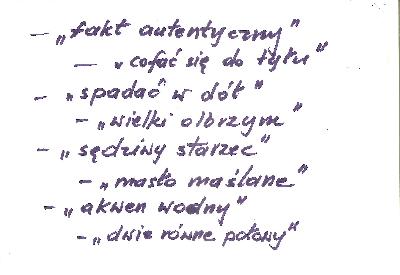 – „fakt autentyczny"
– „cofać się do tyłu"
– „spadać w dół"
– „wielki olbrzym"
– „sędziwy starzec"
– „masło maślane"
– „akwen wodny"
– „dwie równe połowy"